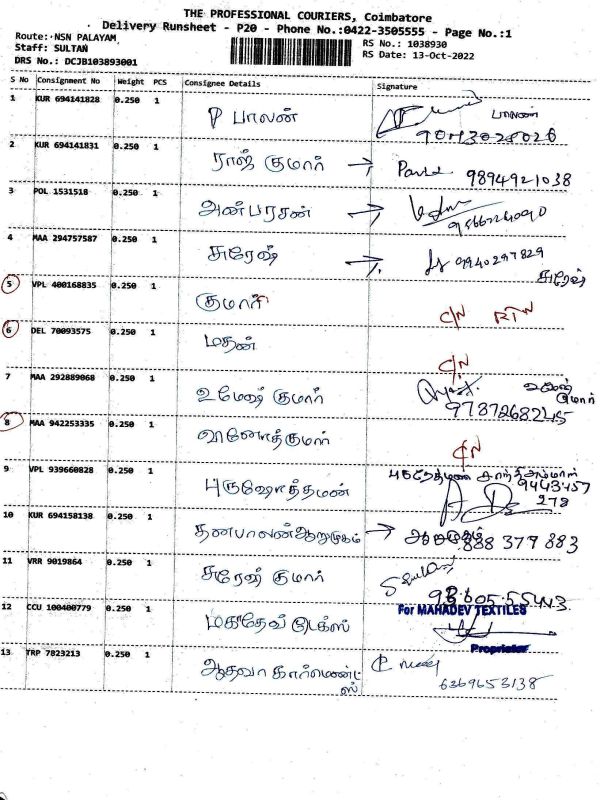 THE PROFESSIONAL COURIERS, Coimbatore
Delivery Runsheet - P20 - Phone No.:0422-3505555 - Page No.:1
Route: NSN PALAYAM RS No.: 1038930
Staff: SULTAN RS Date: 13-Oct-2022
DRS No.: DCJB103893001
S No Consignment No Weight PCS Consignee Details Signature
1 KUR 694141828 0.250 1 P பாலன் பாலன்
2 KUR 694141831 0.250 1 ராஜ் குமார் 9894921038
3 POL 1531518 0.250 1 அன்பரசன்
4 MAA 294757587 0.250 1 சுரேஷ் 9940297829
சுரேஷ்
5 VPL 400168835 0.250 1 குமார் C/N RTN
6 DEL 70093575 0.250 1 மதன் C/N
7 MAA 292889068 0.250 1 உமேஷ் குமார்
8 MAA 942253335 0.250 1 வினோத்குமார் C/N
9 VPL 939660828 0.250 1 புருஷோத்தமன் 9443457
278
10 KUR 694158138 0.250 1 தனபாலன்ஆறுமுகம் ஆறுமுகம் 888 379 883
11 VRR 9019864 0.250 1 சுரேஷ் குமார்
12 CCU 100400779 0.250 1 மகாதேவ் டெக்ஸ் For MAHADEV TEXTILES
Proprietor
13 TRP 7823213 0.250 1 ஆதவா கார்மெண்ட்
ஸ் 6369653138